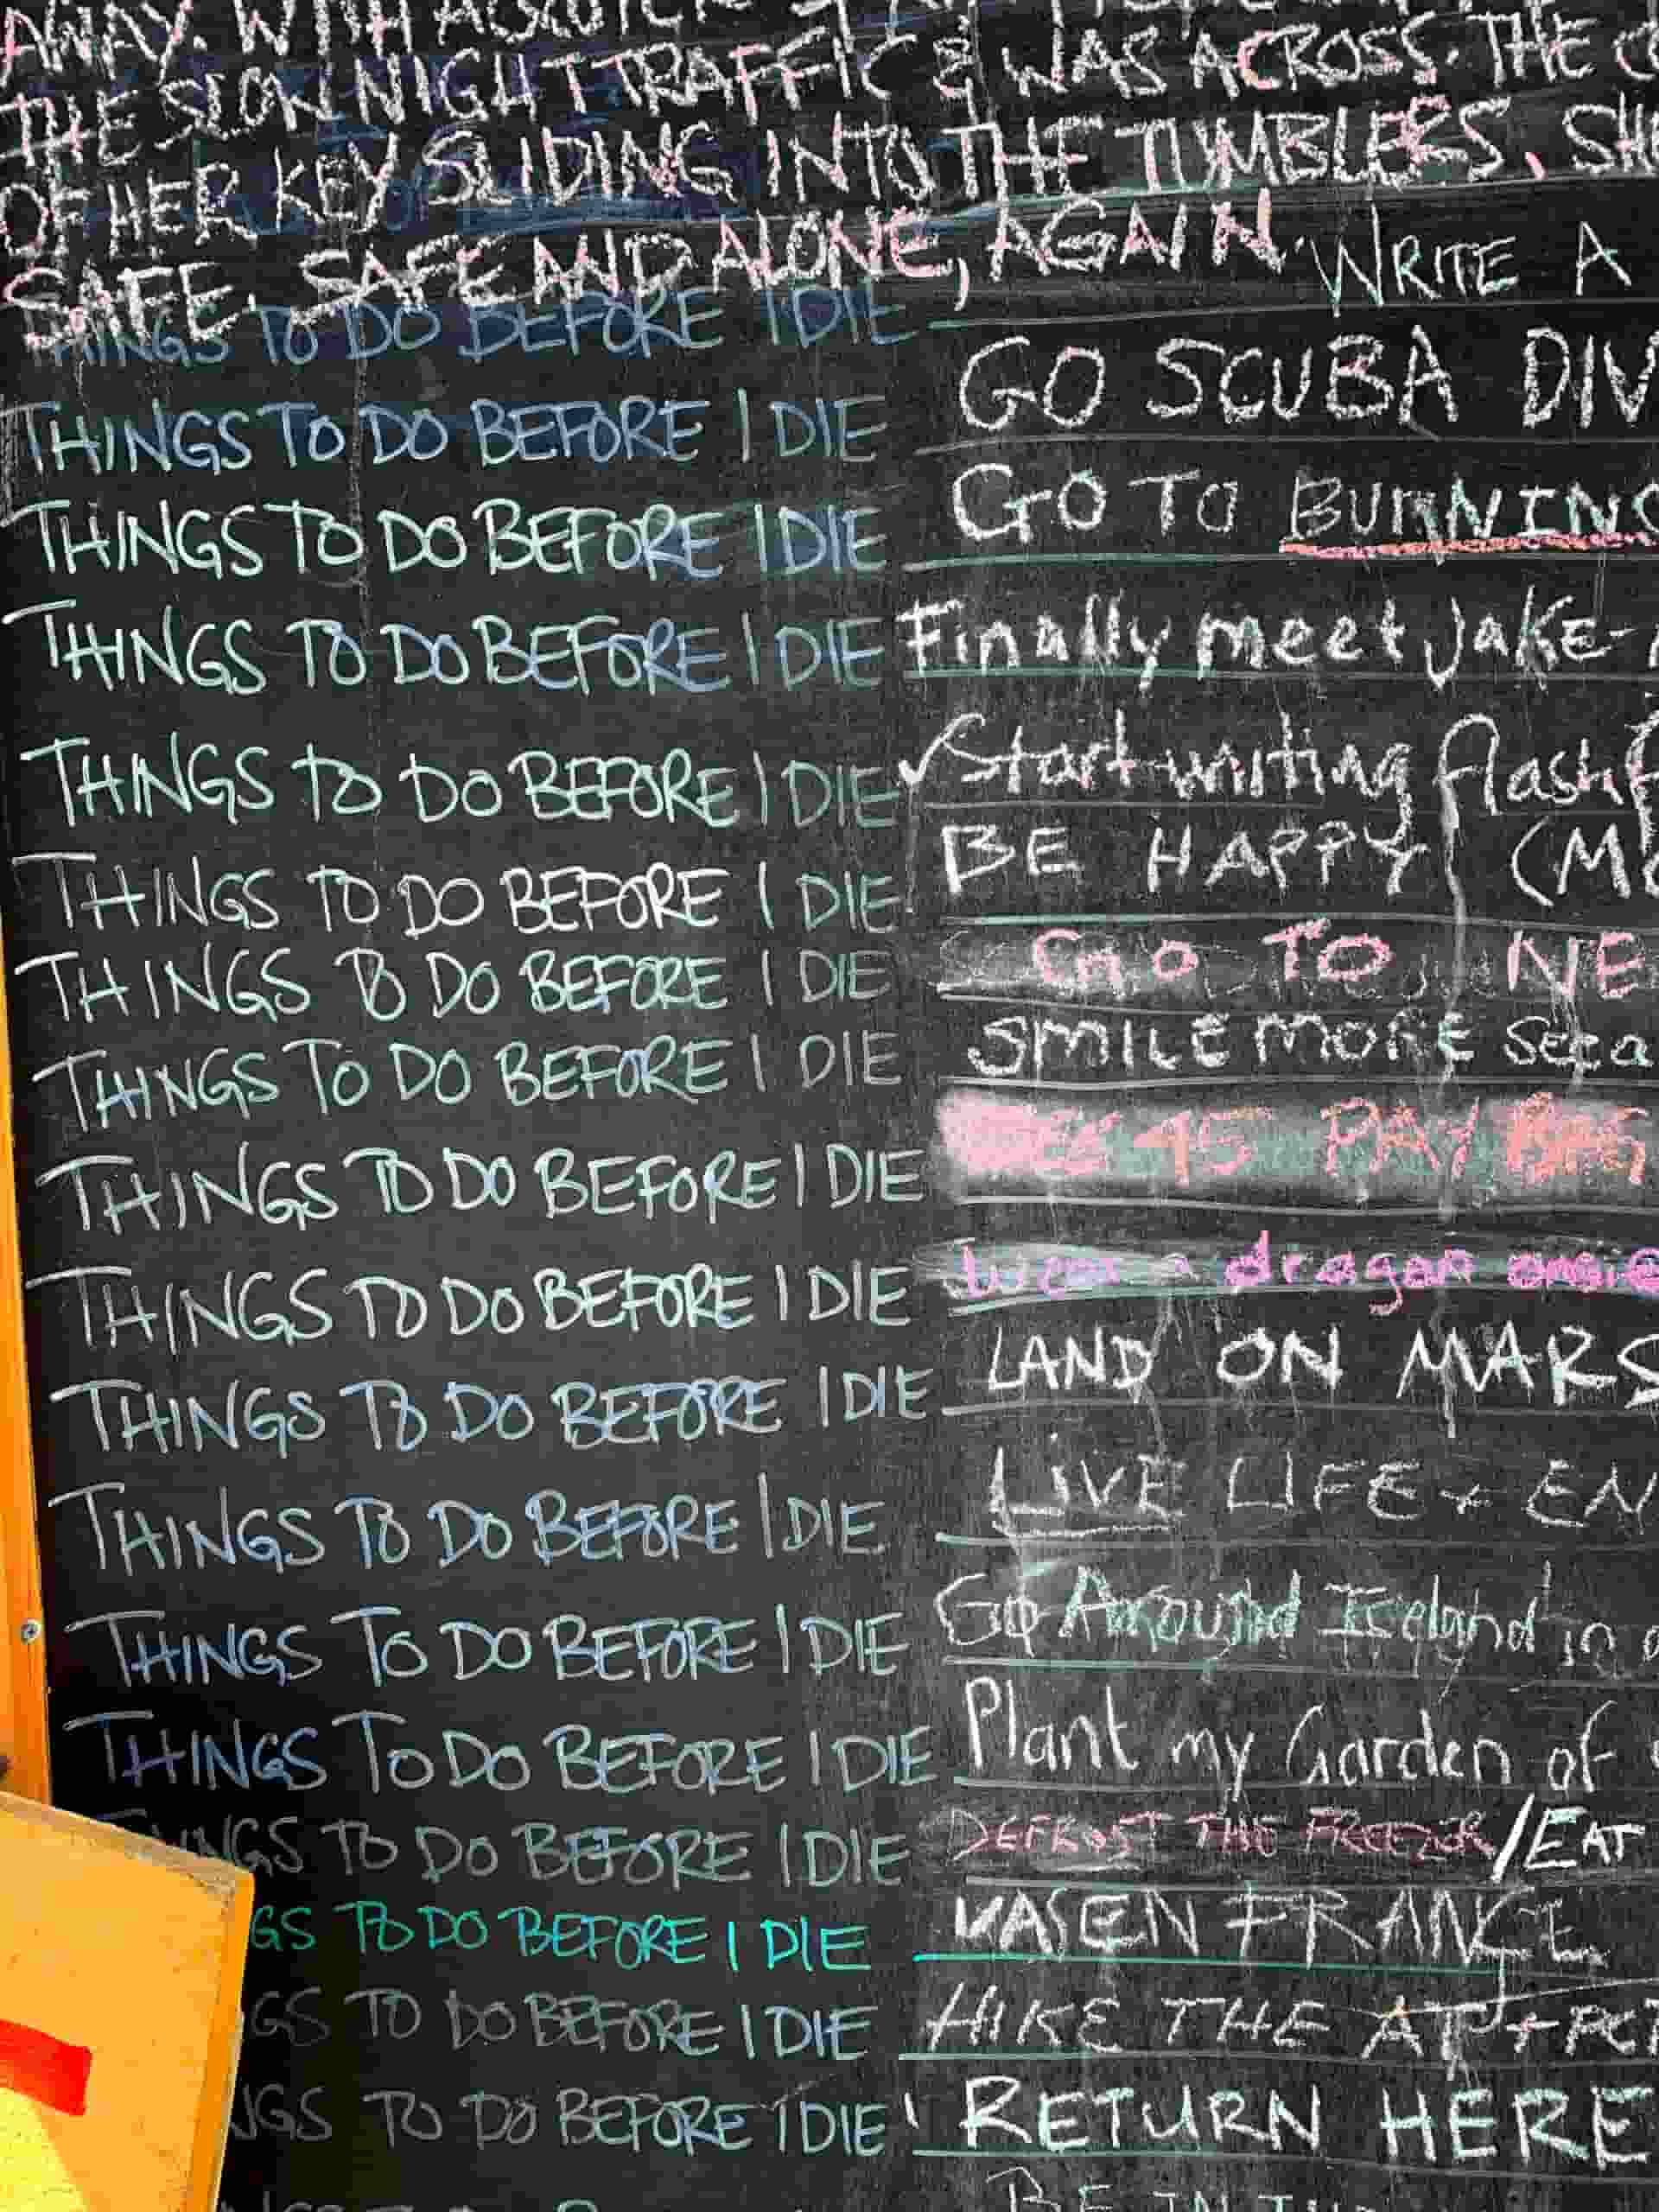 AWAY. WITH A
THE SLOW NIGHT TRAFFIC & WAS ACROSS. THE
OF HER KEY SLIDING INTO THE TUMBLERS. SH
SAFE. SAFE AND ALONE, AGAIN.
THINGS TO DO BEFORE I DIE WRITE A
THINGS TO DO BEFORE I DIE GO SCUBA DIV
THINGS TO DO BEFORE I DIE GO TO BURNING
THINGS TO DO BEFORE I DIE Finally meet Jake-
THINGS TO DO BEFORE I DIE ✓Start writing flash f
THINGS TO DO BEFORE I DIE BE HAPPY (MO
THINGS TO DO BEFORE I DIE GO TO NE
THINGS TO DO BEFORE I DIE SMILE MORE
THINGS TO DO BEFORE I DIE PAY
THINGS TO DO BEFORE I DIE a dragon onsie
THINGS TO DO BEFORE I DIE LAND ON MARS
THINGS TO DO BEFORE I DIE LIVE LIFE + EN
THINGS TO DO BEFORE I DIE Go Around Iceland in a
THINGS TO DO BEFORE I DIE Plant my Garden of
THINGS TO DO BEFORE I DIE DEFROST THE FREEZER/EAT
GS TO DO BEFORE I DIE FRANCE
GS TO DO BEFORE I DIE HIKE THE AT + PCT
NGS TO DO BEFORE I DIE RETURN HERE
BE IN